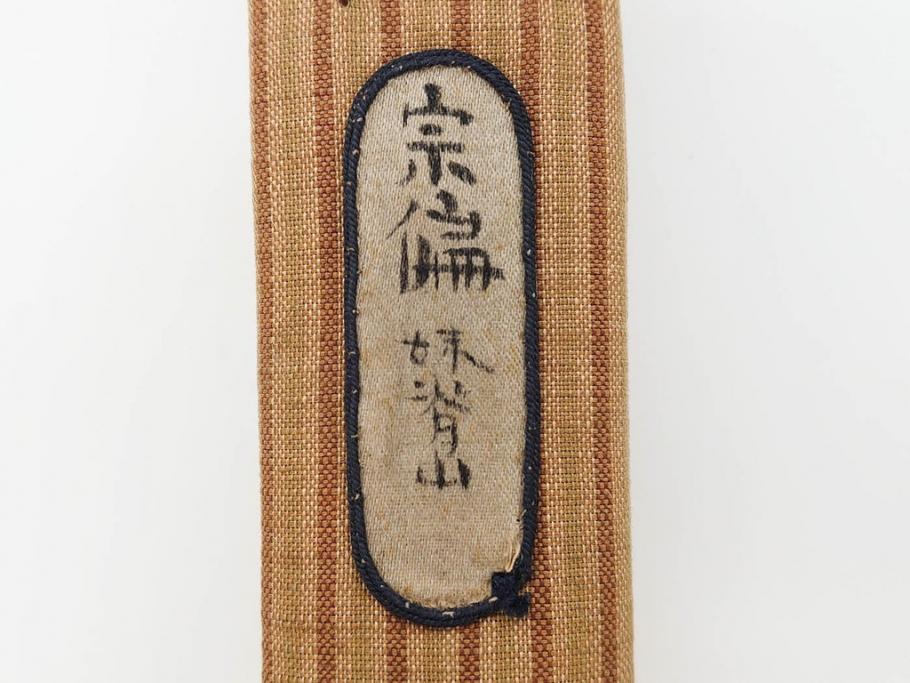 宗偏 妹背山